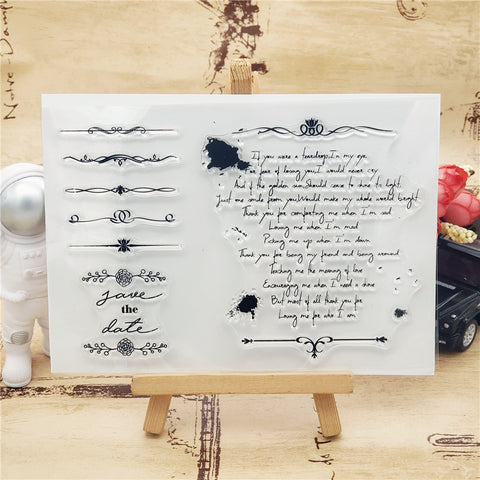 Notre-Dame
save
the
date
If you were a teardrop, In my eye,
For fear of losing you, I would never cry
And if the golden sun, Should cease to shine its light,
Just one smile from you, Would make my whole world bright
Thank you for comforting me when I'm sad
Loving me when I'm mad
Picking me up when I'm down
Thank you for being my friend and being around
Teaching me the meaning of love
Encouraging me when I need a shove
But most of all thank you for
Loving me for who I am